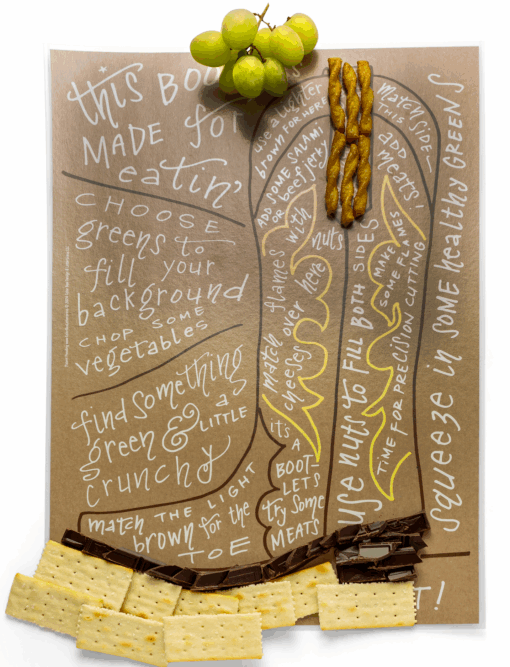 this BOO
MADE for
eatin'
CHOOSE
greens to
fill your
background
CHOP SOME
vegetables
find something
green & a
LITTLE
crunchy
match THE LIGHT
brown for the
TOE
use a lighter
brown FOR HERE
ADD SOME SALAMI
OR beef jerky
match
THIS SIDE
ADD
meats!
match flames with
cheeses over here
nuts
it's
A
BOOT-
LETS
try some
MEATS
use nuts to FILL BOTH SIDES
MAKE
SOME FLAMES
TIME FOR PRECISION CUTTING
squeeze in SOME healthy GREENS
T!